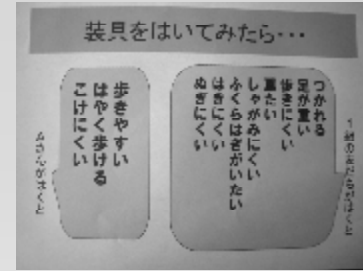 装具をはいてみたら・・・
1組の友だちがはくと
つかれる
足が重い
歩きにくい
重たい
しゃがみにくい
ふくらはぎがいたい
はきにくい
ぬぎにくい
歩きやすい
はやく歩ける
こけにくい
さんがはくと